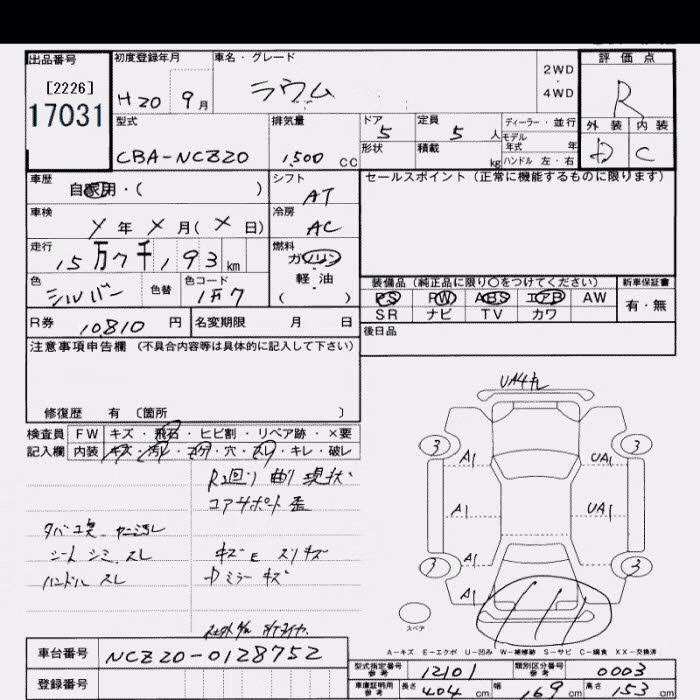 出品番号 初度登録年月 車名・グレード 評価点
[2226] 2WD
17031 H20 9月 ラウム 4WD R
型式 排気量 ドア 5 定員 5人 ディーラー・並行 外装 内装
モデル年式 年
CBA-NCZ20 1,500 CC 形状 積載 kg ハンドル 左・右 C
車歴 自家用・( ) シフト AT セールスポイント(正常に機能するものに限ります)
車検 Y年 X月( X日) 冷房 AC
走行 15万7千193km 燃料 ガソリン
軽油
( )
色 シルバー 色替 色コード 1F7 装備品(純正品に限り○をつけてください) 新車保証書
PS PW ABS エアB AW 有・無
SR ナビ TV カワ
R券 10810円 名変期限 月 日 後日品
注意事項申告欄(不具合内容等は具体的に記入して下さい)
修復歴 有〔箇所 〕
検査員 FW キズ・飛石・ヒビ割・リペア跡・×要
記入欄 内装 キズ・汚レ・コゲ・穴・スレ・キレ・破レ
R廻り曲り現状
コアサポート歪
タバコ臭 ヤニ汚レ
シート シミ スレ キズE スリキズ
ハンドル スレ ミラーキズ
UA4
3 A1 UA1 3
A1 UA1
3 A1 3
A1
スペア
A-キズ E-エクボ U-凹み W-補修跡 S-サビ C-腐食 XX-交換済
車台番号 NCZ20-0128752
型式指定番号 参考 12101 類別区分番号 参考 0003
登録番号 車庫証明用 参考 長さ 404cm 幅 169cm 高さ 153cm